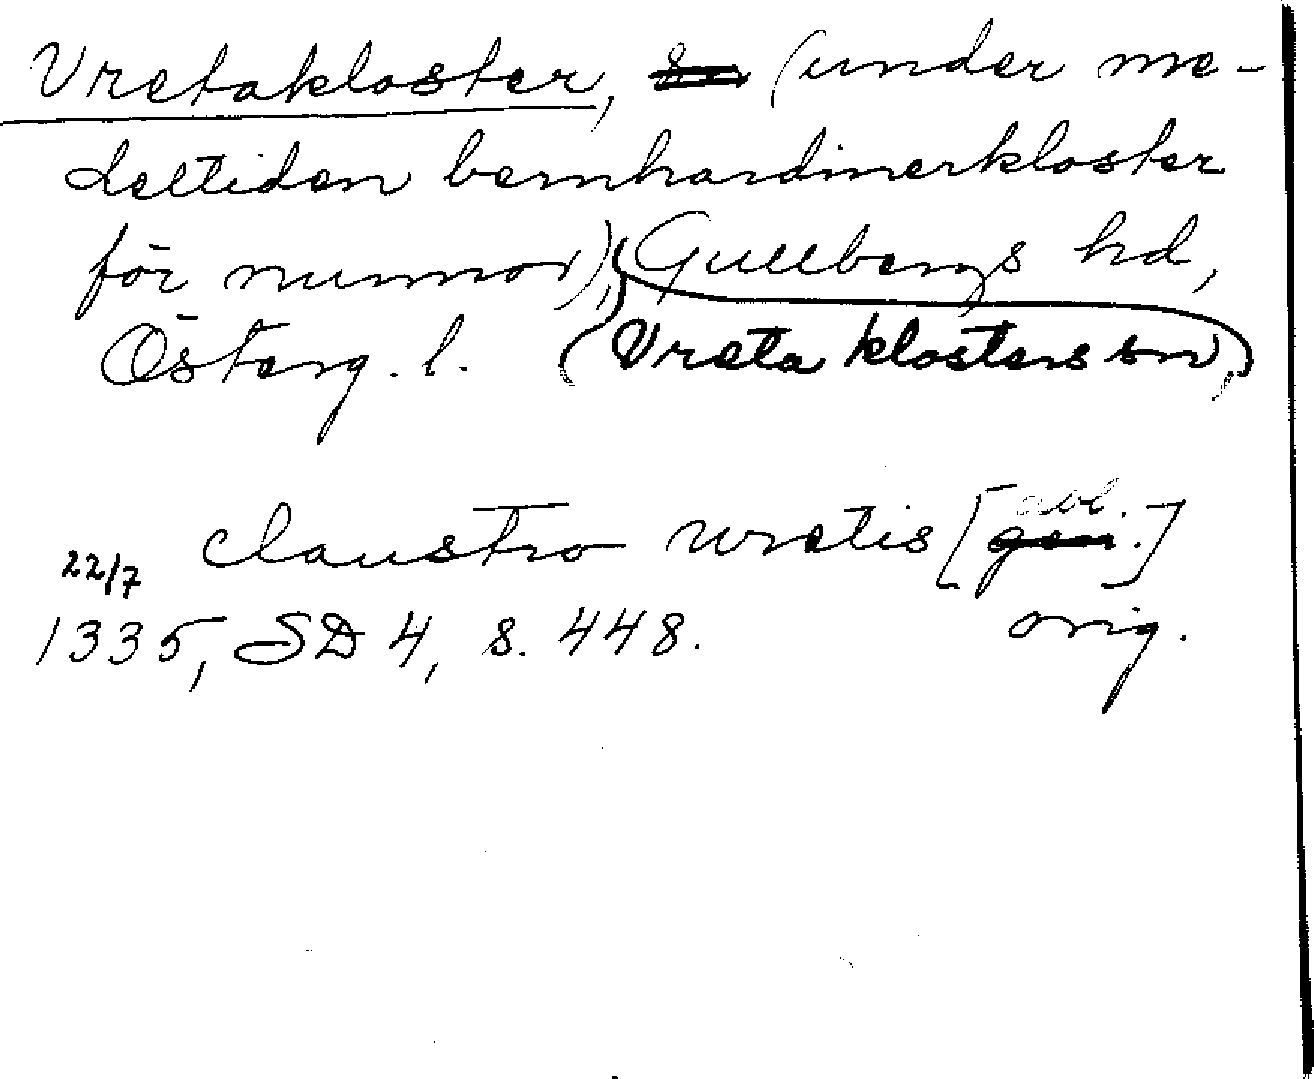 Vretakloster, sn (under me-
deltiden bernhardinerkloster
för nunnor), Gullbergs hd,
Österg. l. (Vreta klosters sn,)
claustro wretis [abl. gen.]
22/7
1335, SD 4, s. 448. orig.